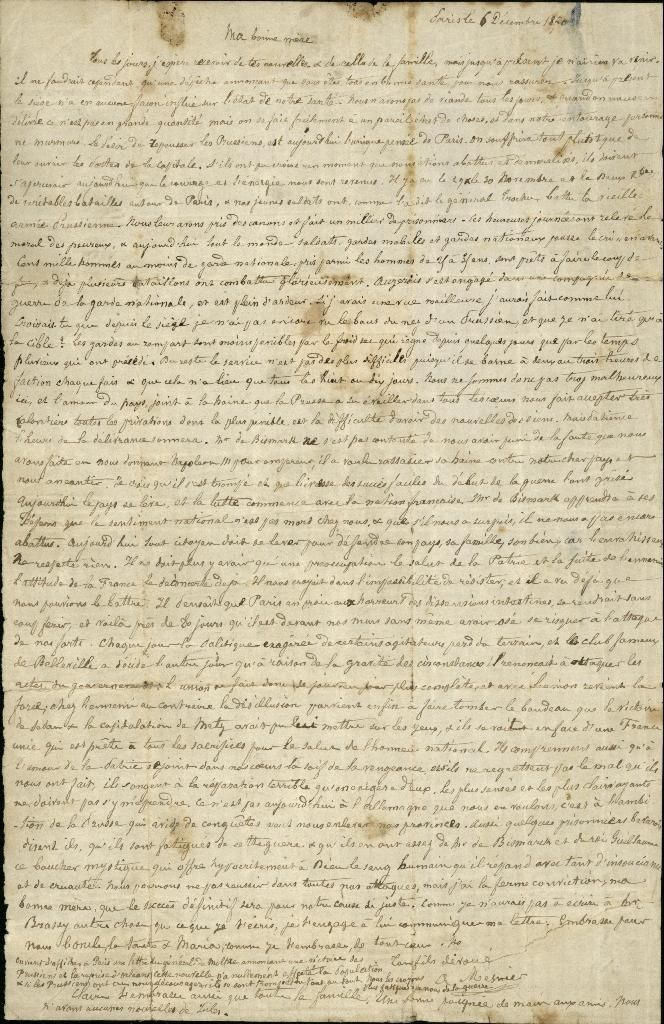 Paris le 6 Décembre 1870
Ma bonne mère
Tous les jours, j'espère recevoir de tes nouvelles & de celles de la famille, mais jusqu'à présent je n'ai rien vu venir.
il ne faudrait cependant qu'une dépêche annonçant que vous êtes tous en bonne santé pour nous rassurer. Jusqu'à présent
le siège n'a en aucune façon influé sur l'état de notre santé. Nous n'avons pas de viande tous les jours, & quand on nous en
délivre ce n'est pas en grande quantité mais on se fait facilement à un pareil état de choses, et dans notre entourage personne
ne murmure. Le désir de repousser les Prussiens, est aujourd'hui l'unique pensée de Paris. On souffrira tout plutôt que de
leur ouvrir les portes de la capitale. S'ils ont pu croire un moment que nous étions abattus et démoralisés, ils doivent
s'apercevoir aujourd'hui que le courage et l'énergie nous sont revenus. Il y a eu le 29 & le 30 Novembre et le Deux
de véritables batailles autour de Paris, & nos jeunes soldats ont, comme l'a dit le général Trochu battu la vieille
armée Prussienne. Nous leur avons pris des canons et fait un millier de prisonniers. Ces heureuses journées ont relevé le
moral des peureux, & aujourd'hui tout le monde soldats, gardes mobiles et gardes nationaux pousse le cri, en avant
Cent mille hommes au moins de garde nationale, pris parmi les hommes de 25 à 35 ans, sont prêts à faire le coup de
feu, & déjà plusieurs bataillons ont combattu glorieusement. s'est engagé dans une compagnie de
guerre de la garde nationale, et est plein d'ardeur. Si j'avais une vue meilleure j'aurais fait comme lui.
Croirais-tu que depuis le siège je n'ai pas encore vu le bout du nez d'un Prussien, et que je n'ai tiré qu'à
la cible? Les gardes au rempart sont moins pénibles par le froid sec qui règne depuis quelques jours que par les temps
pluvieux qui ont précédé. Du reste le service n'est pas des plus difficiles puisqu'il se borne à deux ou trois heures de
faction chaque fois & que cela n'a lieu que tous les huit ou dix jours. Nous ne sommes donc pas trop malheureux
ici, et l'amour du pays, joint à la haine que la Prusse a su éveiller dans tous les cœurs nous fait accepter très
volontiers toutes les privations dont la plus pénible est la difficulté d'avoir des nouvelles des siens. Mais patience
l'heure de la délivrance sonnera. Mr de Bismarck ne s'est pas contenté de nous avoir puni de la faute que nous
avons faite en nous donnant Napoléon III pour empereur, il a voulu rassasier sa haine contre notre cher pays et
nous anéantir. Je crois qu'il s'est trompé et que les succès faciles du début de la guerre l'ont grisé
Aujourd'hui le pays se lève, et la lutte commence avec la nation française, Mr de Bismarck apprendra à ses
dépens que le sentiment national n'est pas mort chez nous, & que s'il nous a surpris, il ne nous a pas encore
abattus. Aujourd'hui tout citoyen doit se lever pour défendre son pays, sa famille, son bien, car l'envahisseur
ne respecte rien. Il ne doit plus y avoir que une préoccupation le salut de la Patrie et la fuite de l'ennemi
l'attitude de la France le déconcerte déjà. Il nous croyait dans l'impossibilité de résister, et il a vu déjà que
nous pouvions le battre. Il pensait que Paris en proie aux horreurs des dissensions intestines, se rendrait sans
coup férir, et voilà près de 80 jours qu'il est devant nos murs sans même avoir osé se risquer à l'attaque
de nos forts. Chaque jour la politique exagérée de certains agitateurs perd du terrain, et le club fameux
de Belleville a décidé l'autre jour qu'à raison de la gravité des circonstances il renonçait à attaquer les
actes du gouvernement. L'union se fait donc de jour en jour plus complète, et avec l'union revient la
force, chez l'ennemi au contraire la désillusion parvient enfin à faire tomber le bandeau que la victoire
de Sedan & la capitulation de Metz avait pu leur mettre sur les yeux, & ils se voient en face d'une France
unie qui est prête à tous les sacrifices pour le salut de l'honneur national. Ils comprennent aussi qu'à
l'amour de la Patrie se joint dans nos cœurs la soif de la vengeance, et s'ils ne regrettent pas le mal qu'ils
nous ont fait, ils songent à la réparation terrible qu'on exigera d'eux. Les plus sensés et les plus clairvoyants
ne doivent pas s'y méprendre. Ce n'est pas aujourd'hui à l'Allemagne que nous en voulons, c'est à l'ambi
tion de la Prusse qui avide de conquêtes veut nous enlever nos provinces. Aussi quelques prisonniers bavarois
disent ils, qu'ils sont fatigués de cette guerre & qu'ils en ont assez de Mr de Bismarck et du roi Guillaume
ce boucher mystique qui offre hypocritement à Dieu le sang humain qu'il répand avec tant d'insouciance
et de cruauté. Nous pouvons ne pas réussir dans toutes nos attaques, mais j'ai la ferme conviction, ma
bonne mère, que le succès définitif sera pour notre cause si juste. Comme je n'aurais pas à écrire à
Brassy autre chose que ce que je t'écris, je t'engage à lui communiquer ma lettre. Embrasse pour
nous l'oncle, la tante & Maria, comme je t'embrasse de tout cœur.
Ton fils dévoué
A. Mesnier
vient d'afficher à Paris une lettre du général de Moltke annonçant une victoire des
Prussiens et la reprise d'Orléans, cette nouvelle n'a nullement affecté la population
& si les Prussiens ont cru nous décourager ils se sont trompés du tout au tout. Nous les croyons plus fatigués que nous de la guerre.
t'embrasse ainsi que toute la famille. Une bonne poignée de main aux amis. Nous
n'avons aucunes nouvelles de Jules.